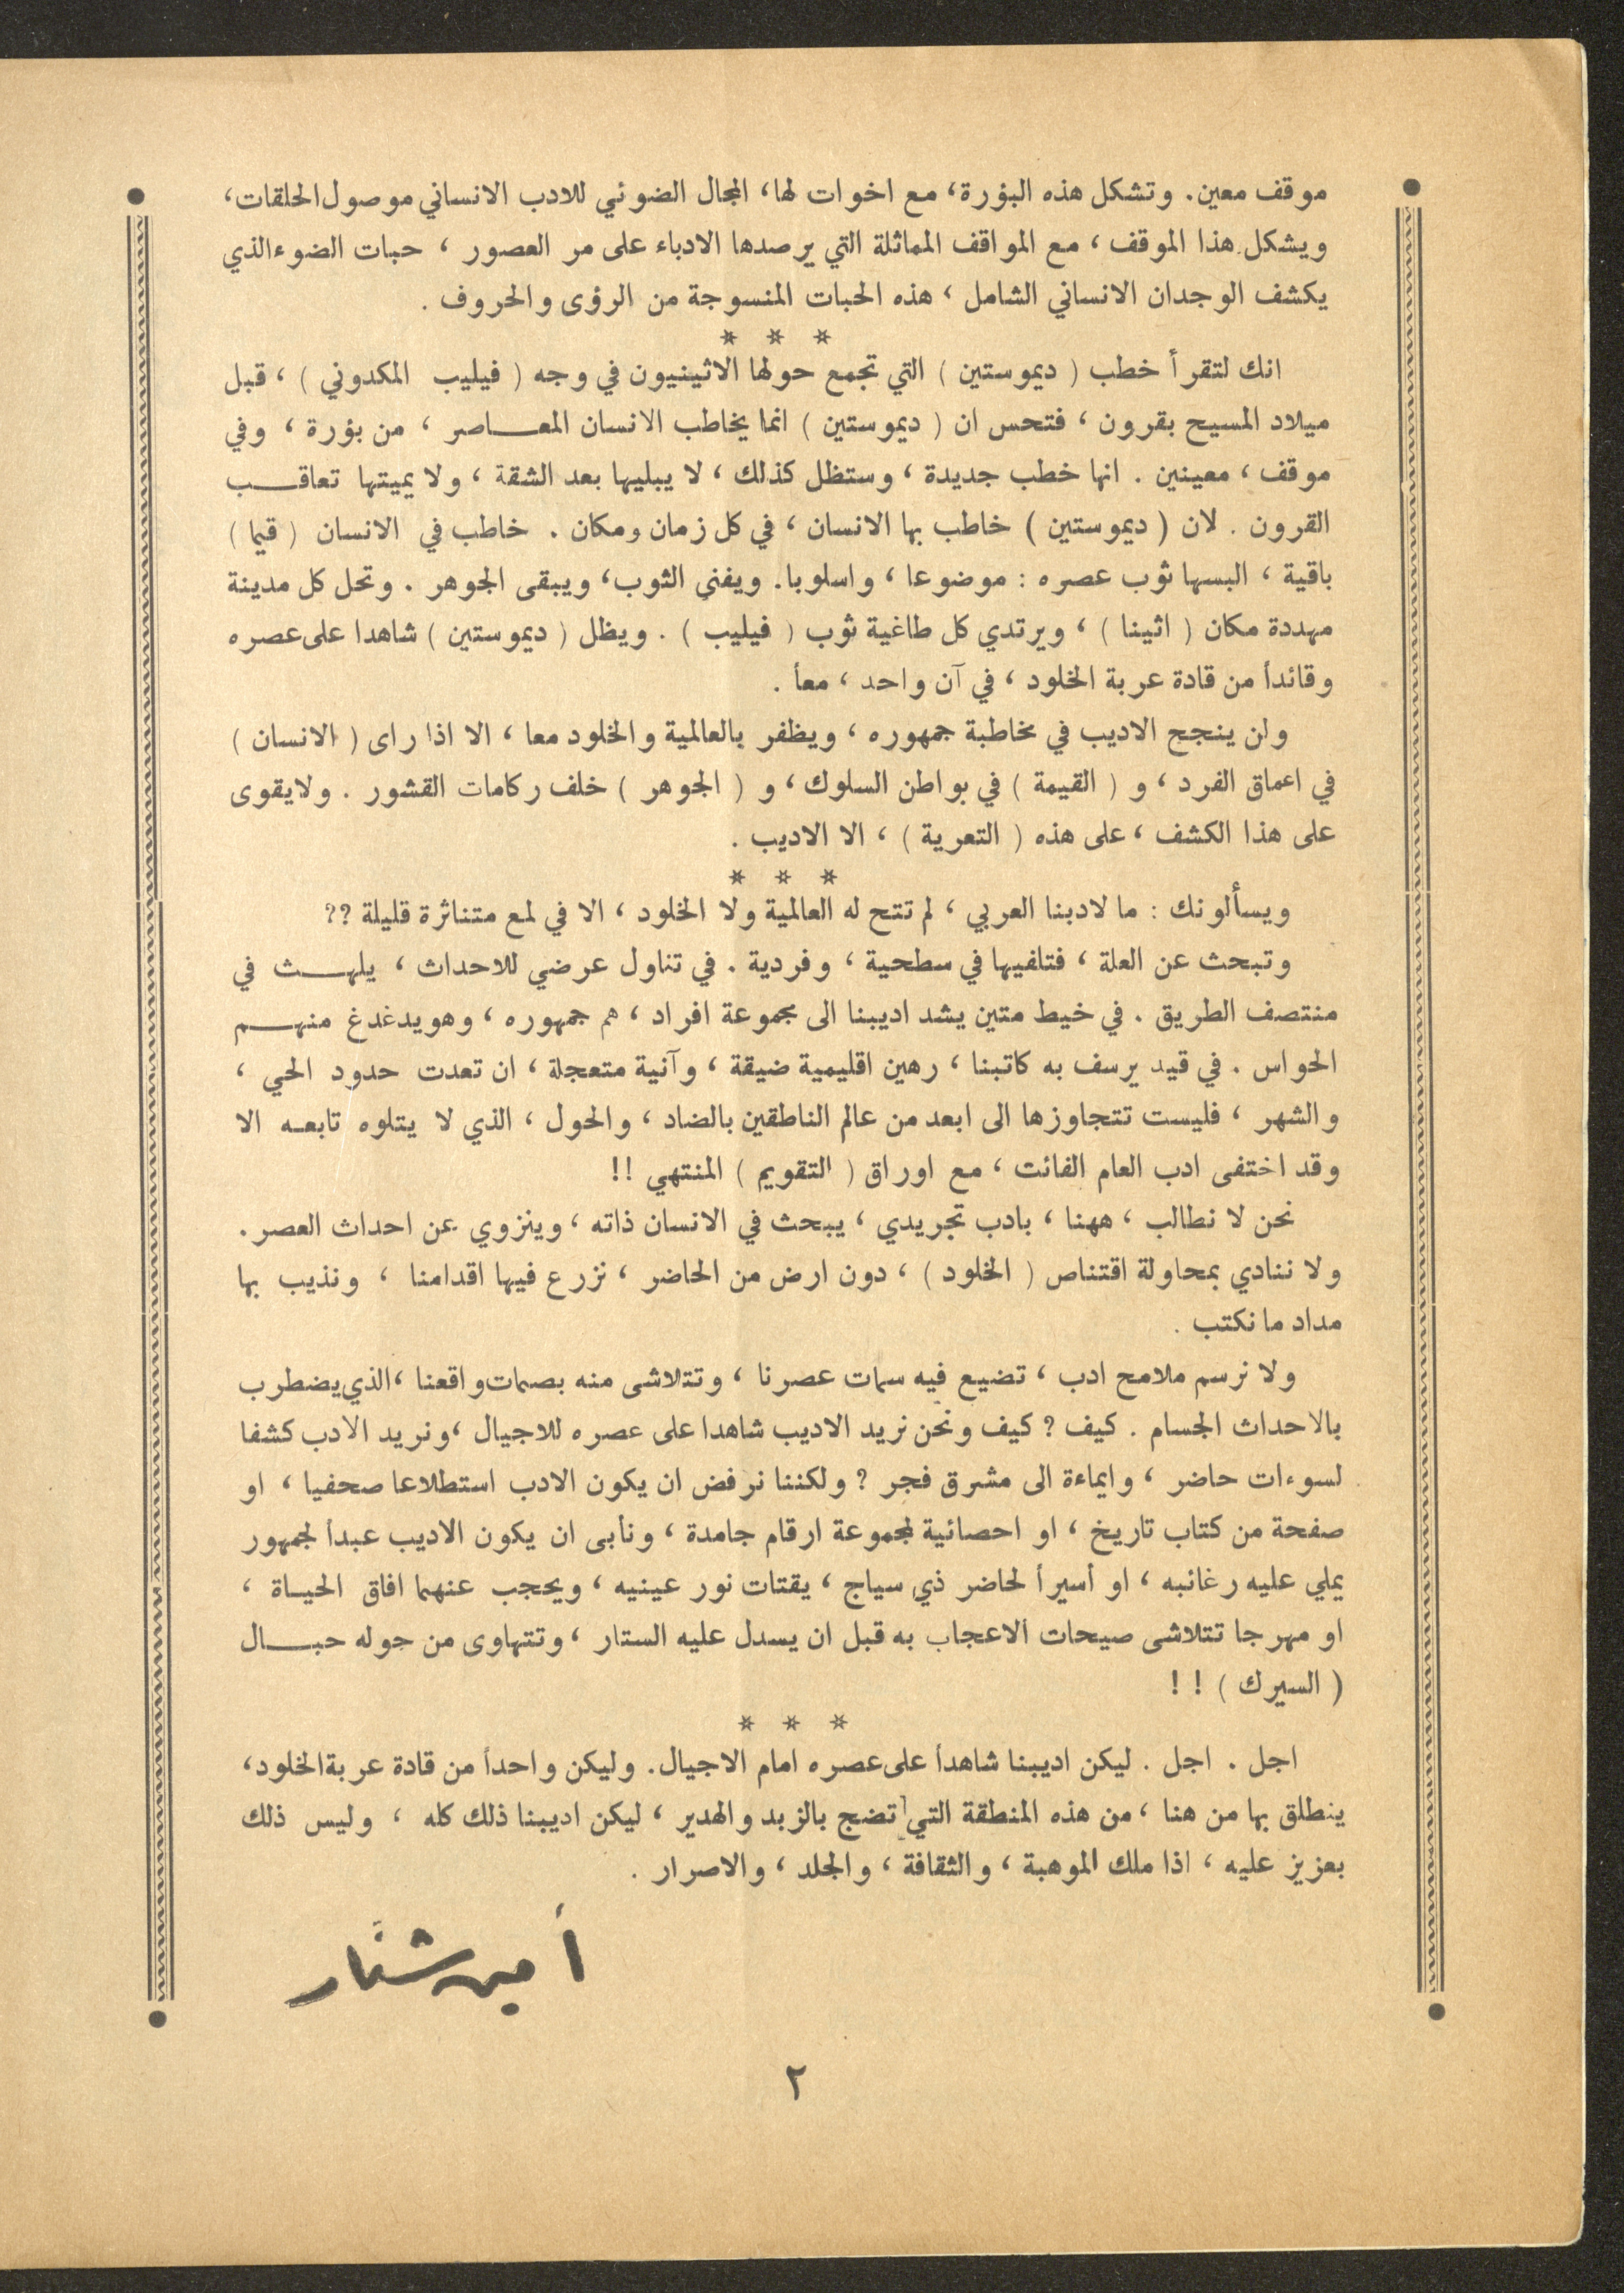 موقف معين. وتشكل هذه البؤرة، مع اخوات لها، المجال الضوئي للادب الانساني موصول الحلقات،
ويشكل هذا الموقف ، مع المواقف المماثلة التي يرصدها الادباء على مر العصور ، حبات الضوء الذي
يكشف الوجدان الانساني الشامل ، هذه الحبات المنسوجة من الرؤى والحروف .
* * *
انك لتقرأ خطب ( ديموستين ) التي تجمع حولها الاثينيون في وجه ( فيليب المكدوني ) ، قبل
ميلاد المسيح بقرون ، فتحس ان ( ديموستين ) انما يخاطب الانسان المعـــاصر ، من بؤرة ، وفي
موقف ، معينين . انها خطب جديدة ، وستظل كذلك ، لا يبليها بعد الشقة ، ولا يميتها تعاقـــب
القرون . لان ( ديموستين ) خاطب بها الانسان ، في كل زمان ومكان . خاطب في الانسان ( قيما )
باقية ، البسها ثوب عصره : موضوعا ، واسلوبا. ويفنى الثوب، ويبقى الجوهر . وتحل كل مدينة
مهددة مكان ( اثينا ) ، ويرتدي كل طاغية ثوب ( فيليب ) . ويظل ( ديموستين ) شاهدا على عصره
وقائدأ من قادة عربة الخلود ، في آن واحد ، معأ .
ولن ينجح الاديب في مخاطبة جمهوره ، ويظفر بالعالمية والخلود معا ، الا اذا راى ( الانسان )
في اعماق الفرد ، و ( القيمة ) في بواطن السلوك ، و ( الجوهر ) خلف ركامات القشور . ولايقوى
على هذا الكشف ، على هذه ( التعرية ) ، الا الاديب .
* * *
ويسألونك : ما لادبنا العربي ، لم تتح له العالمية ولا الخلود ، الا في لمع متناثرة قليلة ؟؟
وتبحث عن العلة ، فتلفيها في سطحية ، وفردية . في تناول عرضي للاحداث ، يلهـــث في
منتصف الطريق . في خيط متين يشد اديبنا الى مجموعة افراد ، هم جمهوره ، وهو يدغدغ منهـــم
الحواس . في قيد يرسف به كاتبنا ، رهين اقليمية ضيقة ، وآنية متعجلة ، ان تعدت حدود الحي ،
والشهر ، فليست تتجاوزها الى ابعد من عالم الناطقين بالضاد ، والحول ، الذي لا يتلوه تابعـه الا
وقد اختفى ادب العام الفائت ، مع اوراق ( التقويم ) المنتهي !!
نحن لا نطالب ، ههنا ، بادب تجريدي ، يبحث في الانسان ذاته ، وينزوي عن احداث العصر .
ولا ننادي بمحاولة اقتناص ( الخلود ) ، دون ارض من الحاضر ، نزرع فيها اقدامنا ، ونذيب بها
مداد ما نكتب .
ولا نرسم ملامح ادب ، تضيع فيه سمات عصرنا ، وتتلاشى منه بصمات واقعنا ، الذي يضطرب
بالاحداث الجسام . كيف ؟ كيف ونحن نريد الاديب شاهدا على عصره للاجيال ، ونريد الادب كشفا
لسوءات حاضر ، وايماءة الى مشرق فجر ؟ ولكننا نرفض ان يكون الادب استطلاعا صحفيا ، او
صفحة من كتاب تاريخ ، او احصائية لمجموعة ارقام جامدة ، ونأبى ان يكون الاديب عبدأ لجمهور
يملي عليه رغائبه ، او أسيرأ لحاضر ذي سياج ، يقتات نور عينيه ، ويحجب عنهما افاق الحيـاة ،
او مهرجا تتلاشى صيحات الاعجاب به قبل ان يسدل عليه الستار ، وتتهاوى من حوله حبـــال
( السيرك ) ! !
* * *
اجل . اجل . ليكن اديبنا شاهدأ على عصره امام الاجيال. وليكن واحدأ من قادة عربة الخلود،
ينطلق بها من هنا ، من هذه المنطقة التي تضج بالزبد والهدير ، ليكن اديبنا ذلك كله ، وليس ذلك
بعزيز عليه ، اذا ملك الموهبة ، والثقافة ، والجلد ، والاصرار .
أمين شنار
٢